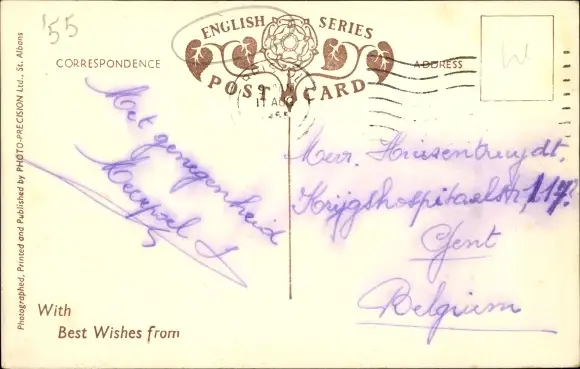 '55
ENGLISH SERIES
POST CARD
CORRESPONDENCE
ADDRESS
11 AUG
W
Photographed, Printed and Published by PHOTO-PRECISION Ltd., St. Albans
Met genegenheid
Mevr. Huisentruydt.
Krijgshospitaalstr, 117.
Gent
Belgium
With
Best Wishes from